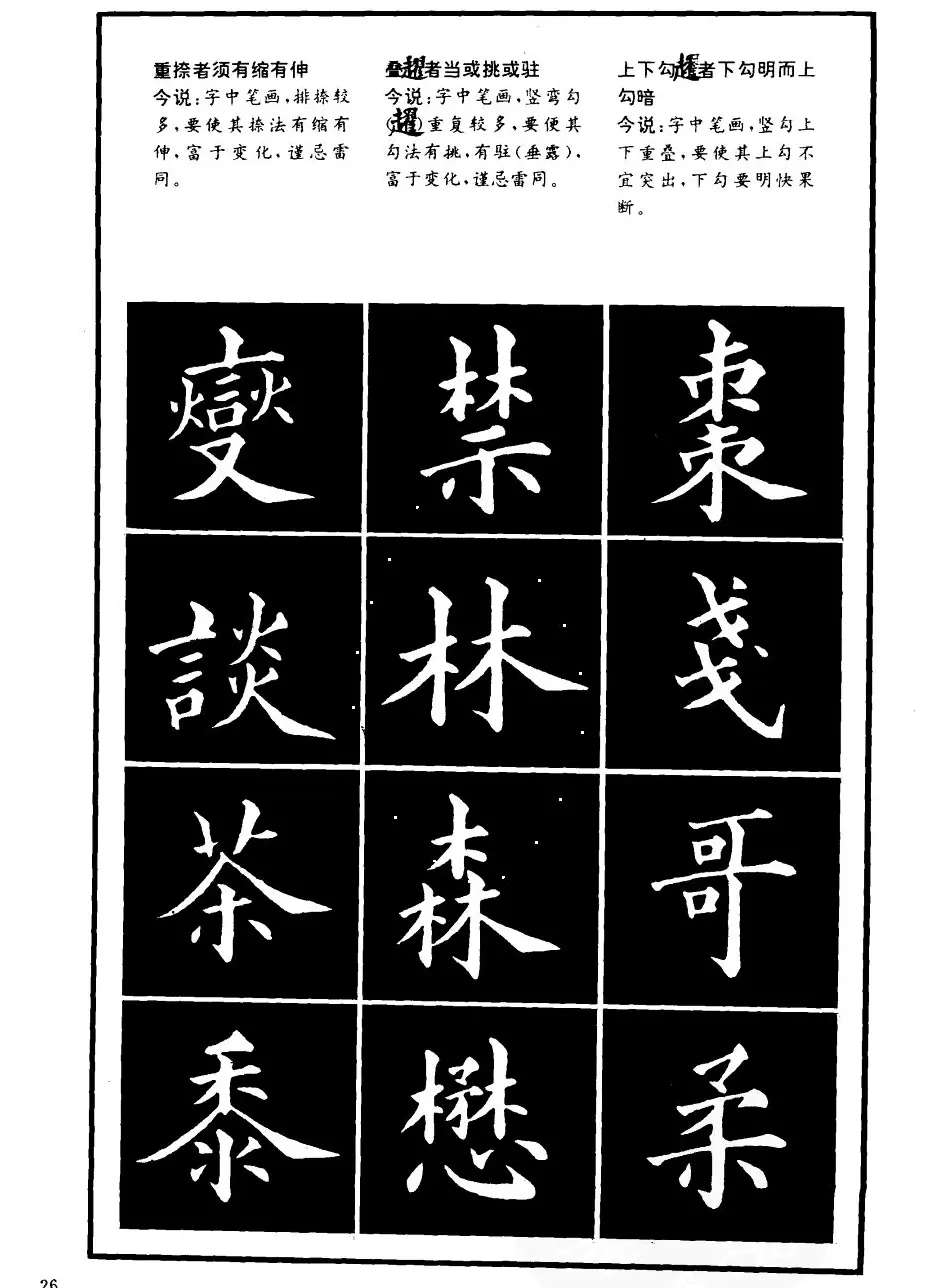 重捺者须有缩有伸
今说:字中笔画,排捺较
多,要使其捺法有缩有
伸,富于变化,谨忌雷
同。
叠趯者当或挑或驻
今说:字中笔画,竖弯勾
(趯)重复较多,要使其
勾法有挑,有驻(垂露),
富于变化,谨忌雷同。
上下勾趯者下勾明而上
勾暗
今说:字中笔画,竖勾上
下重叠,要使其上勾不
宜突出,下勾要明快果
断。
變 禁 棗
談 林 戔
茶 森 哥
黍 懋 柔
26